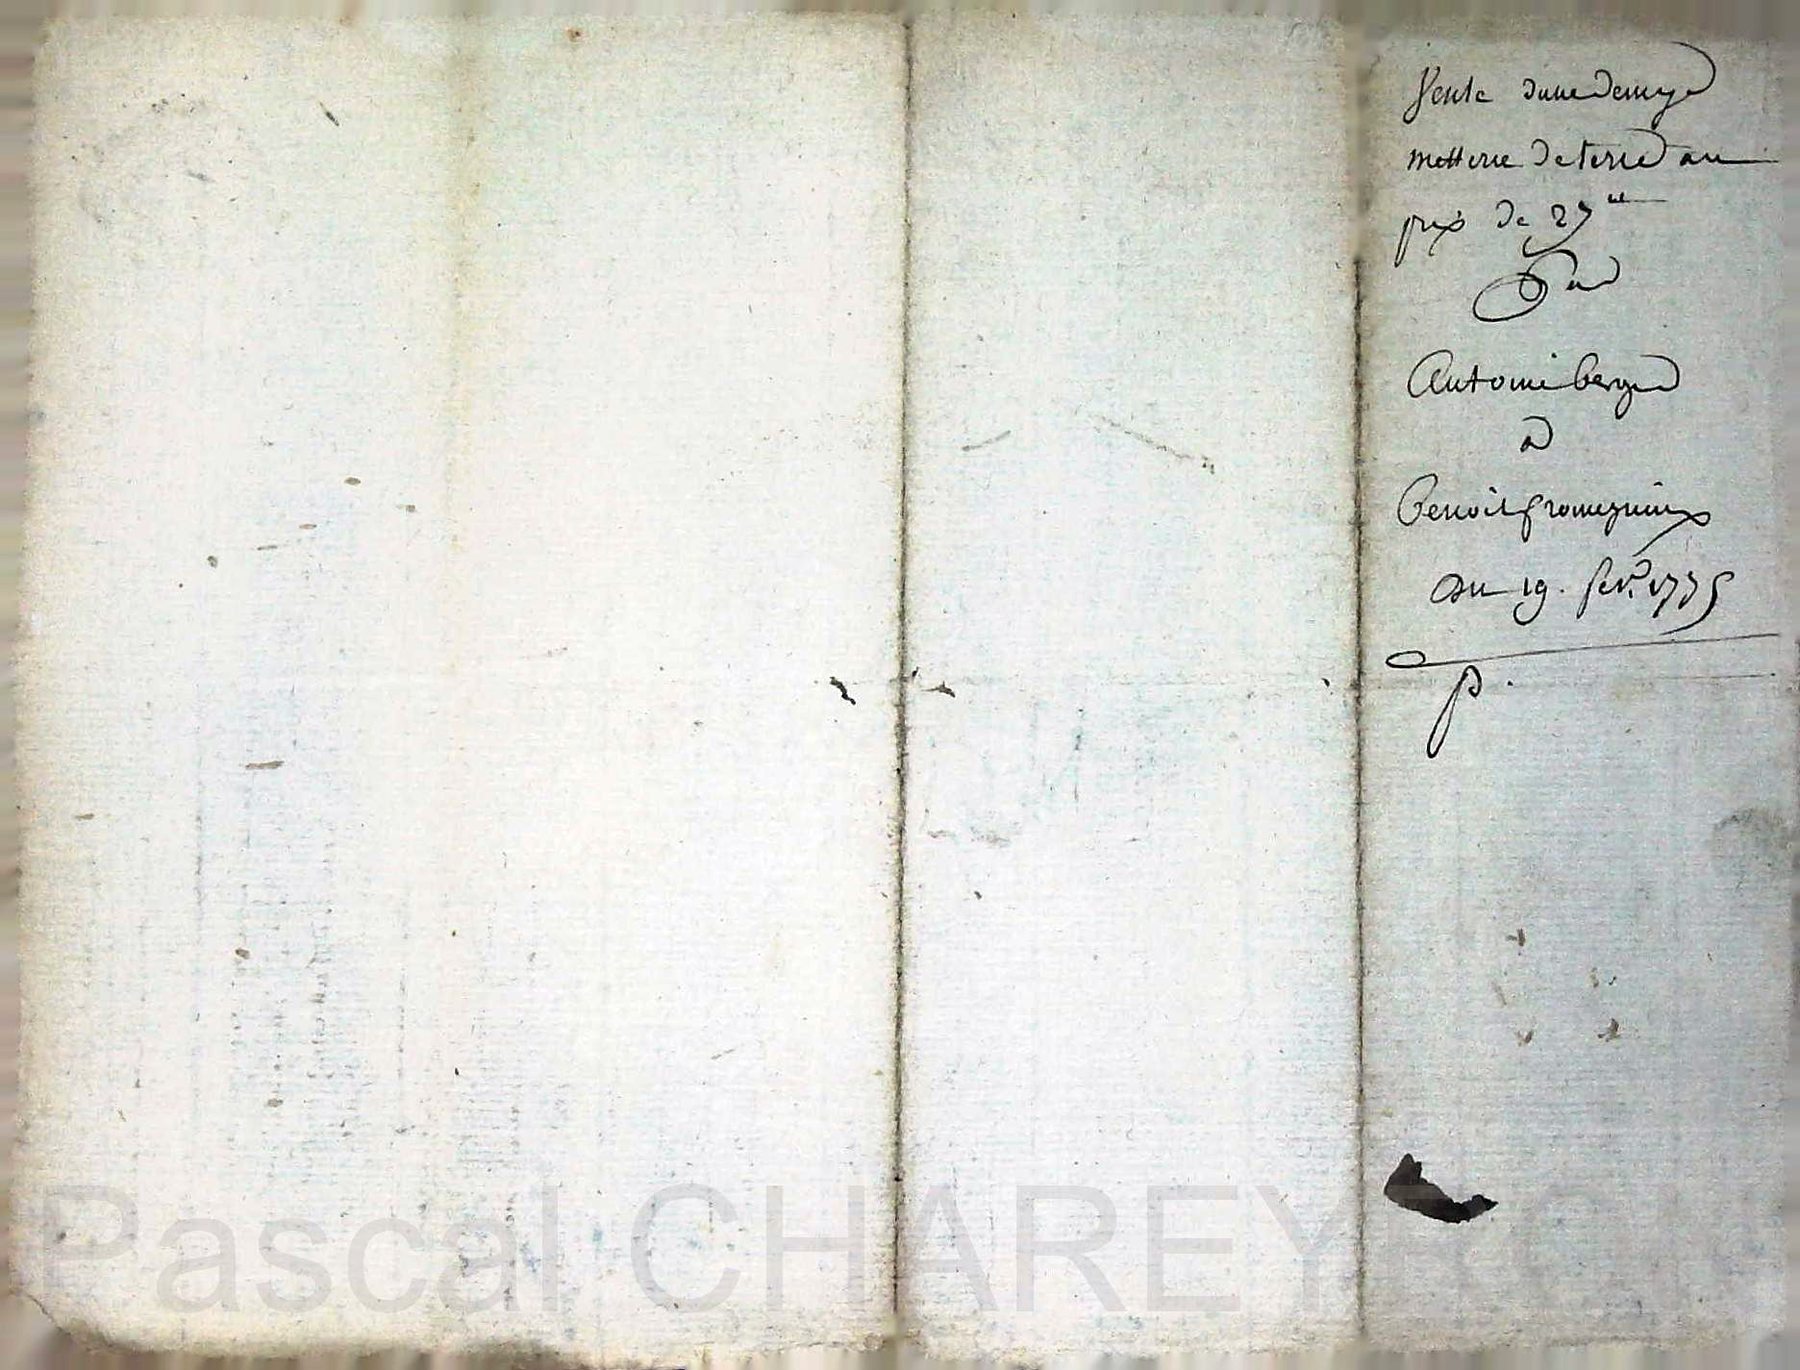 Vente dune demye
metterie de terre au
prix de 27 ᵗᵗ
Par
Antoine berger
a
Benoit fromeznieux
Du 19. fev.ʳ 1775
P.
Pascal CHAREYRON